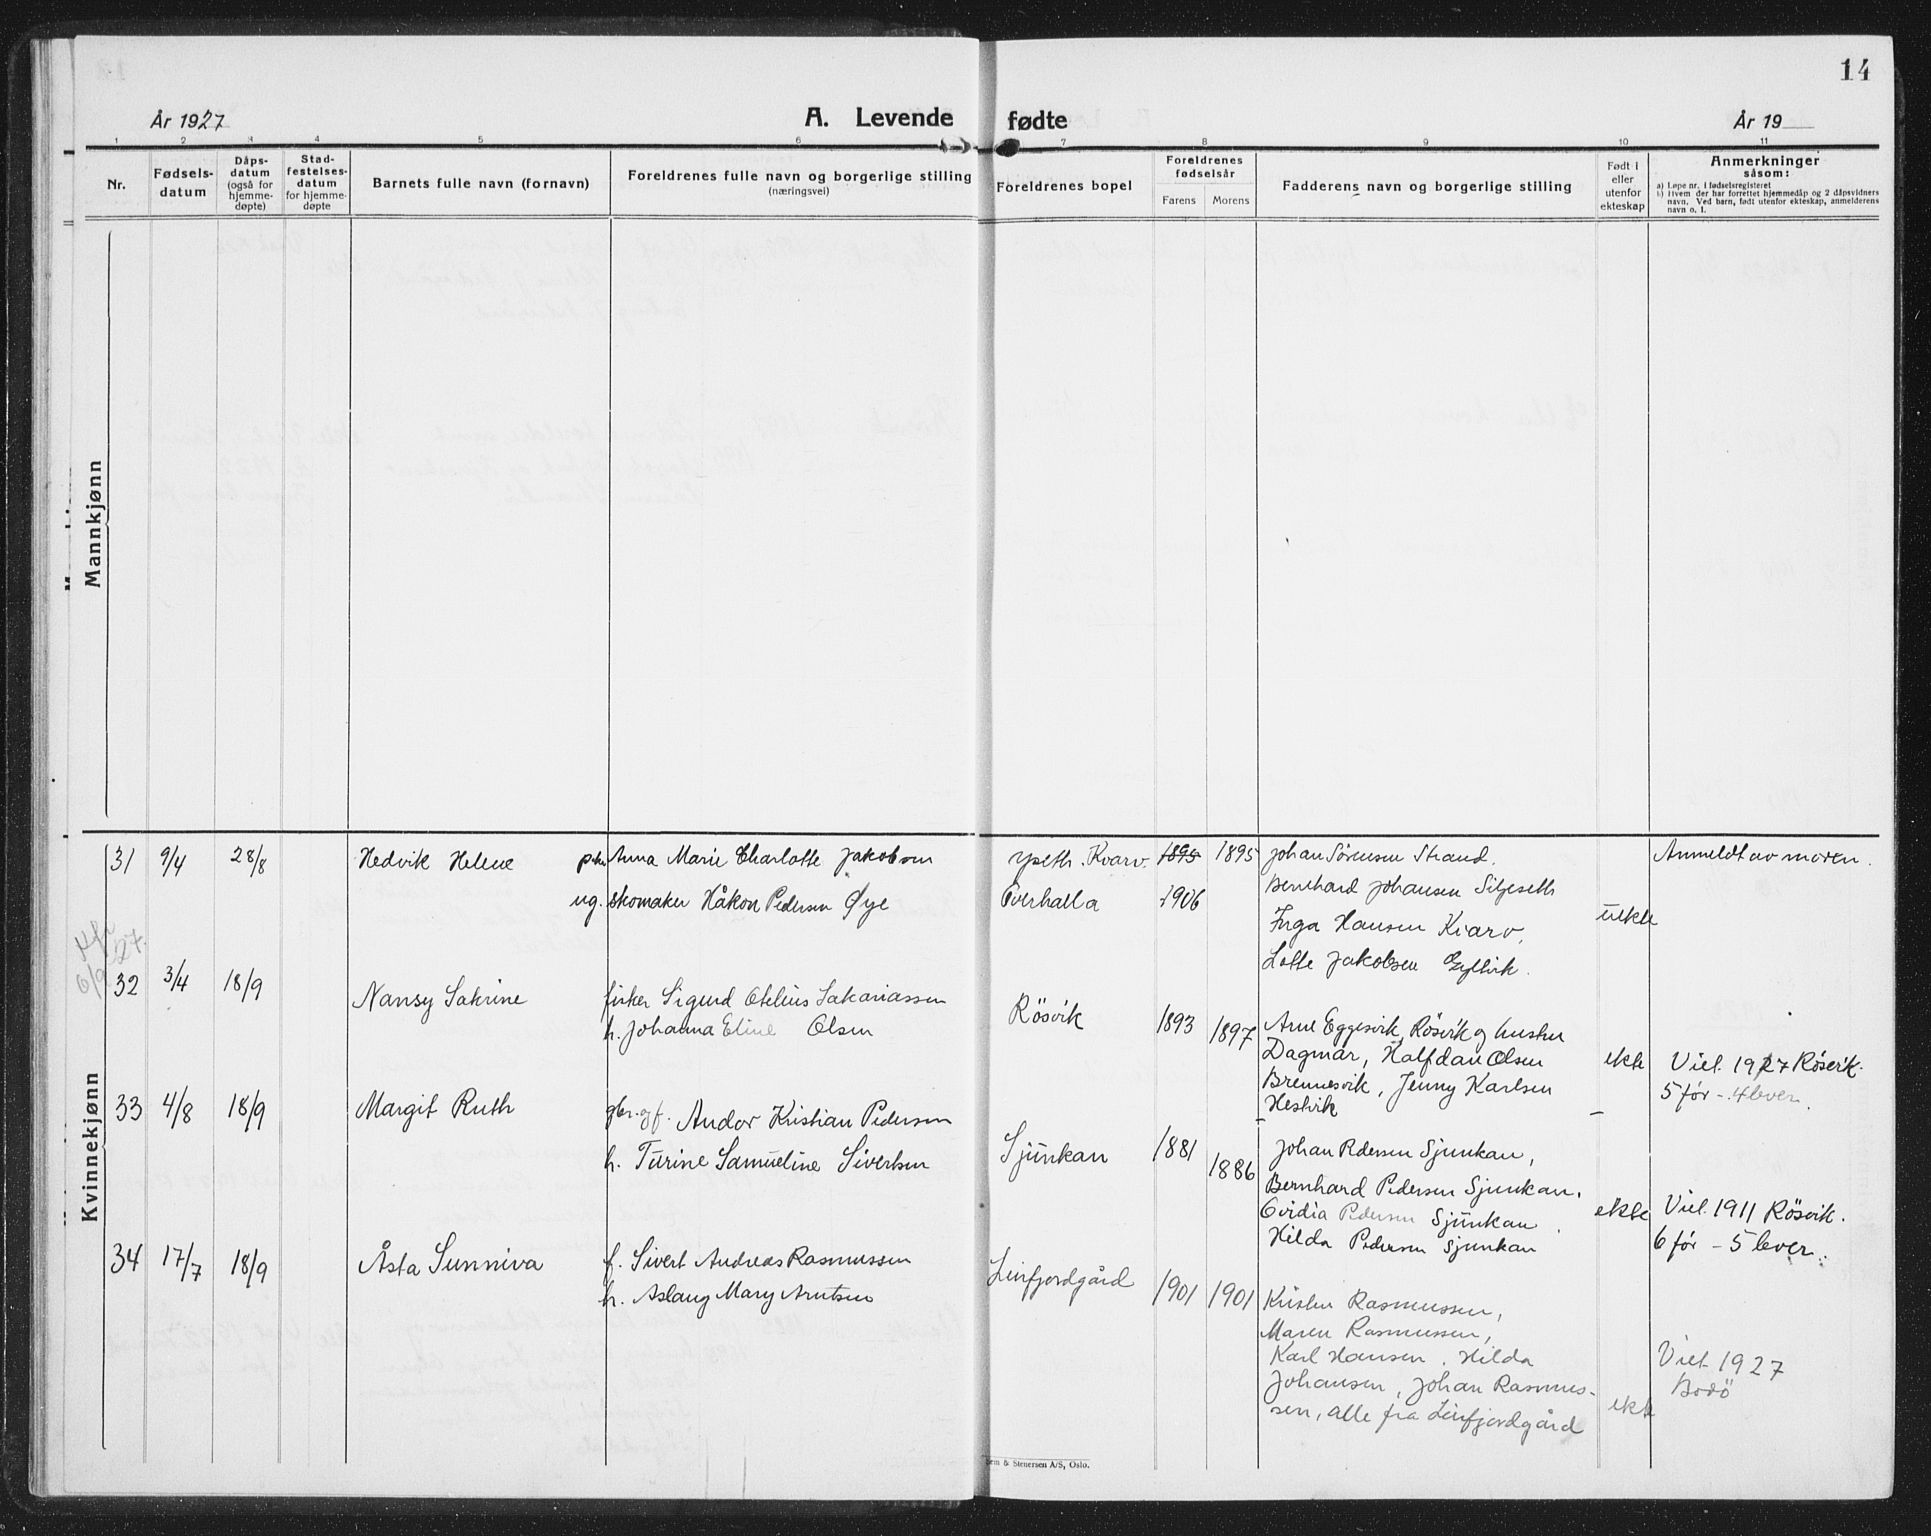 14
År 1927
A. Levende fødte
År 19
1 2 3 4 5 6 7 8 9 10 11
Nr.
Fødsels-
datum
Dåps-
datum
(også for
hjemme-
døpte)
Stad-
festelses-
datum
for hjemme-
døpte
Barnets fulle navn (fornavn)
Foreldrenes fulle navn og borgerlige stilling
(næringsvei)
Foreldrenes bopel
Foreldrenes
fødselsår
Farens
Morens
Fadderens navn og borgerlige stilling
Født i
eller
utenfor
ekteskap
Anmerkninger
såsom:
a) Løpe nr. i fødselsregisteret
b) Hvem der har forrettet hjemmedåp og 2 dåpsvidners
navn. Ved barn, født utenfor ekteskap, anmelderens
navn o. l.
Mannkjønn
Kvinnekjønn
31 9/4 28/8
Hedvik Helene
Anna Marie Charlotte Jakobsen
ug. skomaker Håkon Pedersen Øye
Kvarv.
Overhalla
1895 1895
1906
Johan Sörensen Strand.
Bernhard Johansen Siljeseth
Inga Hansen Kvarv,
Lotte Jakobsen
uekte
Anmeldt av moren.
6/9 27.
32 3/4 18/9
Nansy Sakrine
fisker Sigurd Otelius Sakariassen
h. Johanna Eline Olsen
Rösvik
1893 1897
Arne Eggesvik, Rösvik og hustru
Dagmar, Halfdan Olsen
Brennesvik, Jenny Karlsen
Hestvik
ekte
Viet 1927 Rösvik.
5 før - 4 lever.
33 4/8 18/9
Margit Ruth
gbr. og f. Andor Kristian Pedersen
h. Turine Samueline Sivertsen
Sjunkan
1881 1886
Johan Pedersen Sjunkan,
Bernhard Pedersen Sjunkan,
Ovidia Pedersen Sjunkan
Hilda Pedersen Sjunkan
ekte
Viet 1911 Rösvik.
6 før - 5 lever.
34 17/7 18/9
Åsta Sunniva
f. Sivert Andreas Rasmussen
h. Aslaug Mary Arntsen
Leirfjordgård
1901 1901
Kristen Rasmussen,
Maren Rasmussen,
Karl Hansen, Hilda
Johansen, Johan Rasmus-
sen, alle fra Leirfjordgård
ekte
Viet 1927
Bodö
& Stenersen A/S, Oslo.